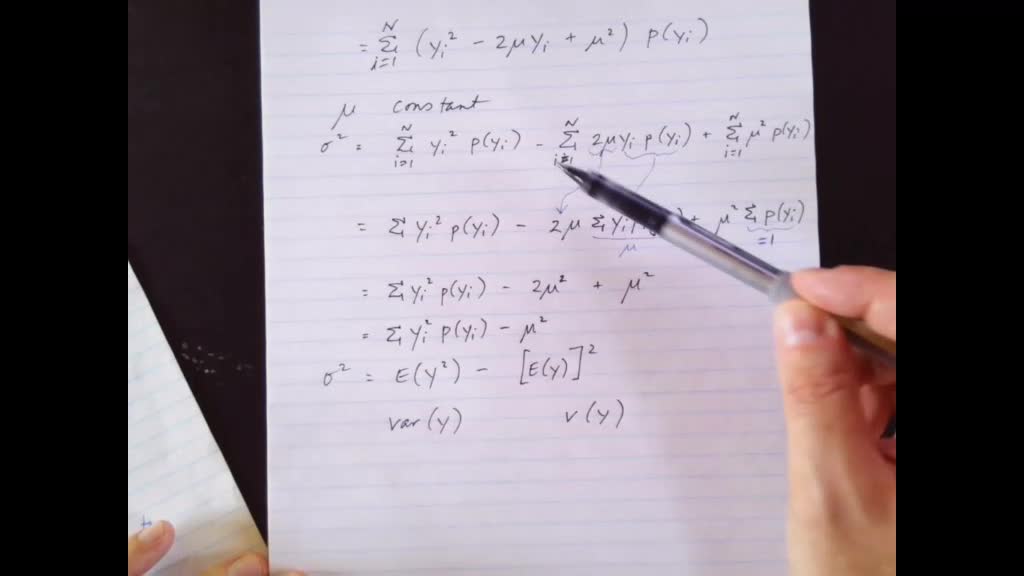 = Σ_{i=1}^{N} (y_i² - 2μy_i + μ²) p(y_i)
μ constant
σ² = Σ_{i=1}^{N} y_i² p(y_i) - Σ_{i=1}^{N} 2μy_i p(y_i) + Σ_{i=1}^{N} μ² p(y_i)
= Σ y_i² p(y_i) - 2μ Σ y_i + μ² Σ p(y_i)
μ =1
= Σ y_i² p(y_i) - 2μ² + μ²
= Σ y_i² p(y_i) - μ²
σ² = E(y²) - [E(y)]²
var(y) v(y)